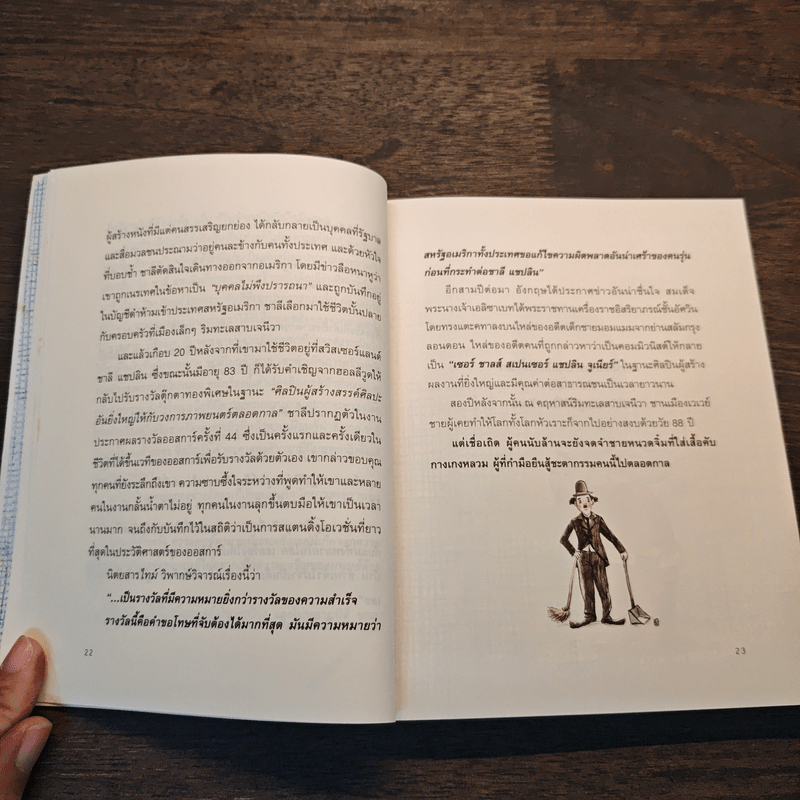 ผู้สร้างหนังที่มีแต่คนสรรเสริญยกย่อง ได้กลับกลายเป็นบุคคลที่รัฐบาล
และสื่อมวลชนประณามว่าอยู่คนละข้างกับคนทั้งประเทศ และด้วยหัวใจ
ที่บอบช้ำ ชาลีตัดสินใจเดินทางออกจากอเมริกา โดยมีข่าวลือหนาหูว่า
เขาถูกเนรเทศในข้อหาเป็น "บุคคลไม่พึงปรารถนา" และถูกบันทึกอยู่
ในบัญชีดำห้ามเข้าประเทศสหรัฐอเมริกา ชาลีเลือกมาใช้ชีวิตบั้นปลาย
กับครอบครัวที่เมืองเล็กๆ ริมทะเลสาบเจนีวา
และแล้วเกือบ 20 ปีหลังจากที่เขามาใช้ชีวิตอยู่ที่สวิสเซอร์แลนด์
ชาลี แชปลิน ซึ่งขณะนั้นมีอายุ 83 ปี ก็ได้รับคำเชิญจากฮอลลีวูดให้
กลับไปรับรางวัลตุ๊กตาทองพิเศษในฐานะ "ศิลปินผู้สร้างสรรค์ศิลปะ
อันยิ่งใหญ่ให้กับวงการภาพยนตร์ตลอดกาล" ชาลีปรากฏตัวในงาน
ประกาศผลรางวัลออสการ์ครั้งที่ 44 ซึ่งเป็นครั้งแรกและครั้งเดียวใน
ชีวิตที่ได้ขึ้นเวทีของออสการ์เพื่อรับรางวัลด้วยตัวเอง เขากล่าวขอบคุณ
ทุกคนที่ยังระลึกถึงเขา ความซาบซึ้งใจระหว่างที่พูดทำให้เขาและหลาย
คนในงานกลั้นน้ำตาไม่อยู่ ทุกคนในงานลุกขึ้นตบมือให้เขาเป็นเวลา
นานมาก จนถึงกับบันทึกไว้ในสถิติว่าเป็นการสแตนดิ้งโอเวชั่นที่ยาว
ที่สุดในประวัติศาสตร์ของออสการ์
นิตยสารไทม์ วิพากษ์วิจารณ์เรื่องนี้ว่า
"...เป็นรางวัลที่มีความหมายยิ่งกว่ารางวัลของความสำเร็จ
รางวัลนี้คือคำขอโทษที่จับต้องได้มากที่สุด มันมีความหมายว่า
22
สหรัฐอเมริกาทั้งประเทศขอแก้ไขความผิดพลาดอันน่าเศร้าของคนรุ่น
ก่อนที่กระทำต่อชาลี แชปลิน"
อีกสามปีต่อมา อังกฤษได้ประกาศข่าวอันน่าชื่นใจ สมเด็จ
พระนางเจ้าเอลิซาเบทได้พระราชทานเครื่องราชอิสริยาภรณ์ชั้นอัศวิน
โดยทรงแตะคทาลงบนไหล่ของอดีตเด็กชายมอมแมมจากย่านสลัมกรุง
ลอนดอน ไหล่ของอดีตคนที่ถูกกล่าวหาว่าเป็นคอมมิวนิสต์ให้กลาย
เป็น "เซอร์ ชาลส์ สเปนเซอร์ แชปลิน จูเนียร์" ในฐานะศิลปินผู้สร้าง
ผลงานที่ยิ่งใหญ่และมีคุณค่าต่อสาธารณชนเป็นเวลายาวนาน
สองปีหลังจากนั้น ณ คฤหาสน์ริมทะเลสาบเจนีวา ชานเมืองเวเวย์
ชายผู้เคยทำให้โลกทั้งโลกหัวเราะก็จากไปอย่างสงบด้วยวัย 88 ปี
แต่เชื่อเถิด ผู้คนนับล้านจะยังจดจำชายหนวดจิ๋มที่ใส่เสื้อคับ
กางเกงหลวม ผู้ที่กำมือยืนสู้ชะตากรรมคนนี้ไปตลอดกาล
23